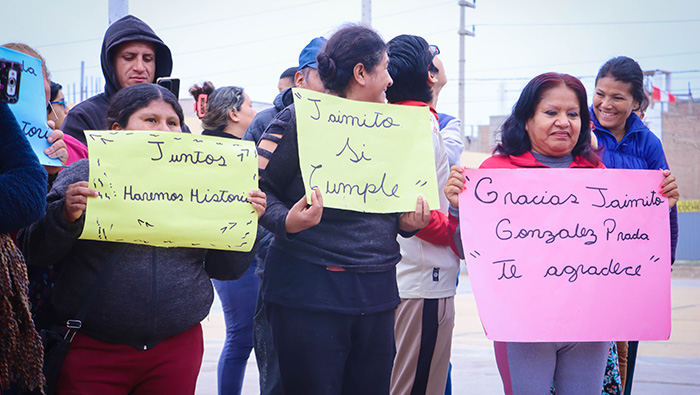 Juntos
Haremos Historia
Jaimito
Si
Cumple"
Gracias Jaimito
Gonzalez Prada
"Te agradece"